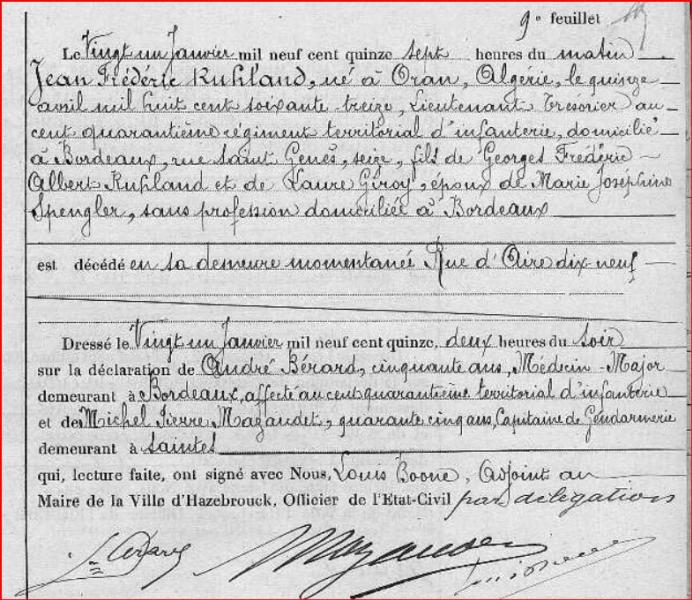 9e feuillet
Le Vingt un Janvier mil neuf cent quinze sept heures du matin
Jean Frédéric Ruhland, né à Oran, Algérie, le quinze
avril mil huit cent soixante treize, Lieutenant trésorier au
cent quarantième régiment territorial d'infanterie, domicilié
à Bordeaux, rue Saint Genès, seize, fils de Georges Frédéric
Albert Ruhland et de Laure Giroy, époux de Marie Joséphine
Spengler, sans profession domiciliée à Bordeaux
est décédé en sa demeure momentanée Rue d'Aire dix neuf
Dressé le Vingt un Janvier mil neuf cent quinze, deux heures du Soir
sur la déclaration de André Bérard, cinquante ans, Médecin-Major
demeurant à Bordeaux, affecté au cent quarantième territorial d'infanterie
et de Michel Pierre Mazaudet, quarante cinq ans, Capitaine de Gendarmerie
demeurant à Saintes
qui, lecture faite, ont signé avec Nous, Louis Boone, Adjoint au
Maire de la Ville d'Hazebrouck, Officier de l'Etat-Civil par délégation